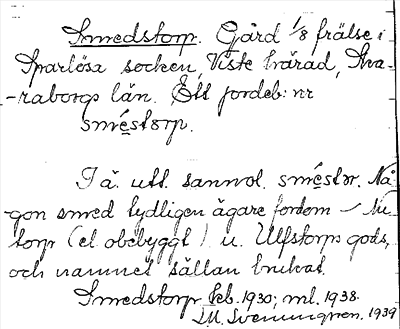 Smedstorp. Gård 1/8 frälse i
Sparlösa socken, Viste härad, Ska-
-raborgs län. Ett jordeb: nr
sméstorp.
I ä. utt. sannol. sméstər. Nå-
gon smed tydligen ägare fordom – Nu
torp (el. obebyggt) u. Ulfstorps gods,
och namnet sällan brukat.
Smedstorp feb. 1930; ml. 1938.
LM. Svenungson. 1939